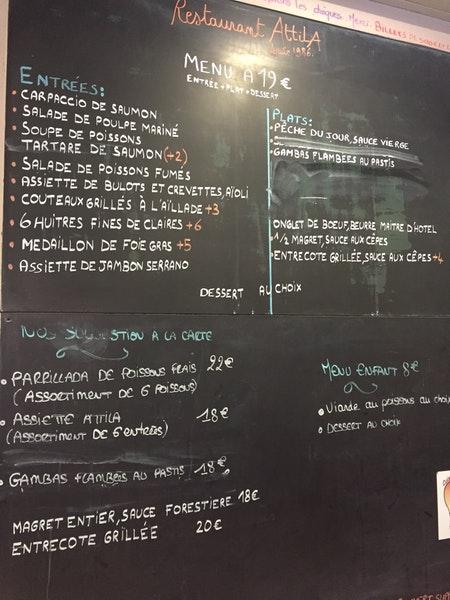 les chèques. Merci. BILLETS DE
Restaurant AttilA
1986.
MENU À 19 €
ENTRÉE + PLAT + DESSERT
ENTRÉES:
• CARPACCIO DE SAUMON
• SALADE DE POULPE MARINÉ
• SOUPE DE POISSONS
TARTARE DE SAUMON (+2)
• SALADE DE POISSONS FUMÉS
• ASSIETTE DE BULOTS ET CREVETTES, AÏOLI
• COUTEAUX GRILLÉS À L'AÏLLADE +3
• 6 HUITRES FINES DE CLAIRES +6
• MEDAILLON DE FOIE GRAS +5
• ASSIETTE DE JAMBON SERRANO
PLATS:
• PÊCHE DU JOUR, SAUCE VIERGE
GAMBAS FLAMBEES AU PASTIS
ONGLET DE BOEUF, BEURRE MAITRE D'HOTEL
• 1/2 MAGRET, SAUCE AUX CÈPES
• ENTRECOTE GRILLÉE, SAUCE AUX CÊPES +4
DESSERT AU CHOIX
NOS SUGGESTION A LA CARTE
• PARRILLADA DE POISSONS FRAIS 22€
(ASSORTIMENT DE 6 POISSONS)
• ASSIETTE ATTILA 18€
(ASSORTIMENT DE 6 ENTRÉES)
• GAMBAS FLAMBÉES AU PASTIS 18€
MAGRET ENTIER, SAUCE FORESTIERE 18€
ENTRECOTE GRILLÉE 20€
MENU ENFANT 8€
• Viande ou poissons au choix
• DESSERT AU CHOIX